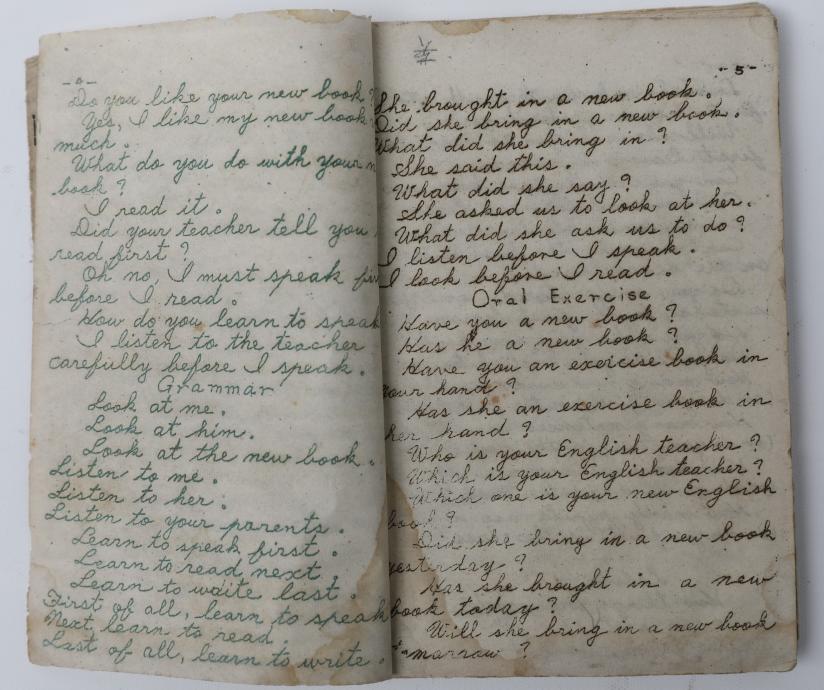 -4-
Do you like your new book?
Yes, I like my new book
much.
What do you do with your
book?
I read it.
Did your teacher tell you
read first?
Oh no, I must speak
before I read.
How do you learn to speak
I listen to the teacher
carefully before I speak.
Grammar
Look at me.
Look at him.
Look at the new book.
Listen to me.
Listen to her.
Listen to your parents.
Learn to speak first.
Learn to read next.
Learn to write last.
First of all, learn to speak
Next, learn to read.
Last of all, learn to write.
-5-
She brought in a new book.
Did she bring in a new book.
What did she bring in?
She said this.
What did she say?
She asked us to look at her.
What did she ask us to do?
I listen before I speak.
I look before I read.
Oral Exercise
Have you a new book?
Has he a new book?
Have you an exercise book in
your hand?
Has she an exercise book in
her hand?
Who is your English teacher?
Which is your English teacher?
Which one is your new English
book?
Did she bring in a new book
yesterday?
Has she brought in a new
book today?
Will she bring in a new book
morrow?